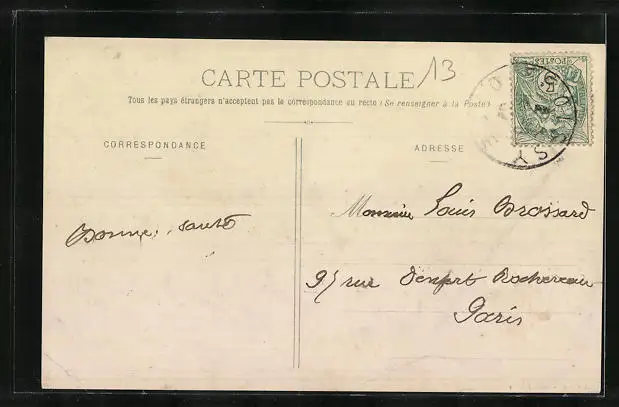 CARTE POSTALE 13
Tous les pays étrangers n'acceptent pas la correspondance au recto (Se renseigner à la Poste)
CORRESPONDANCE
ADRESSE
Bonne santé
Monsieur Louis Brossard
95 rue Denfert Rochereau
Paris
POSTES
5